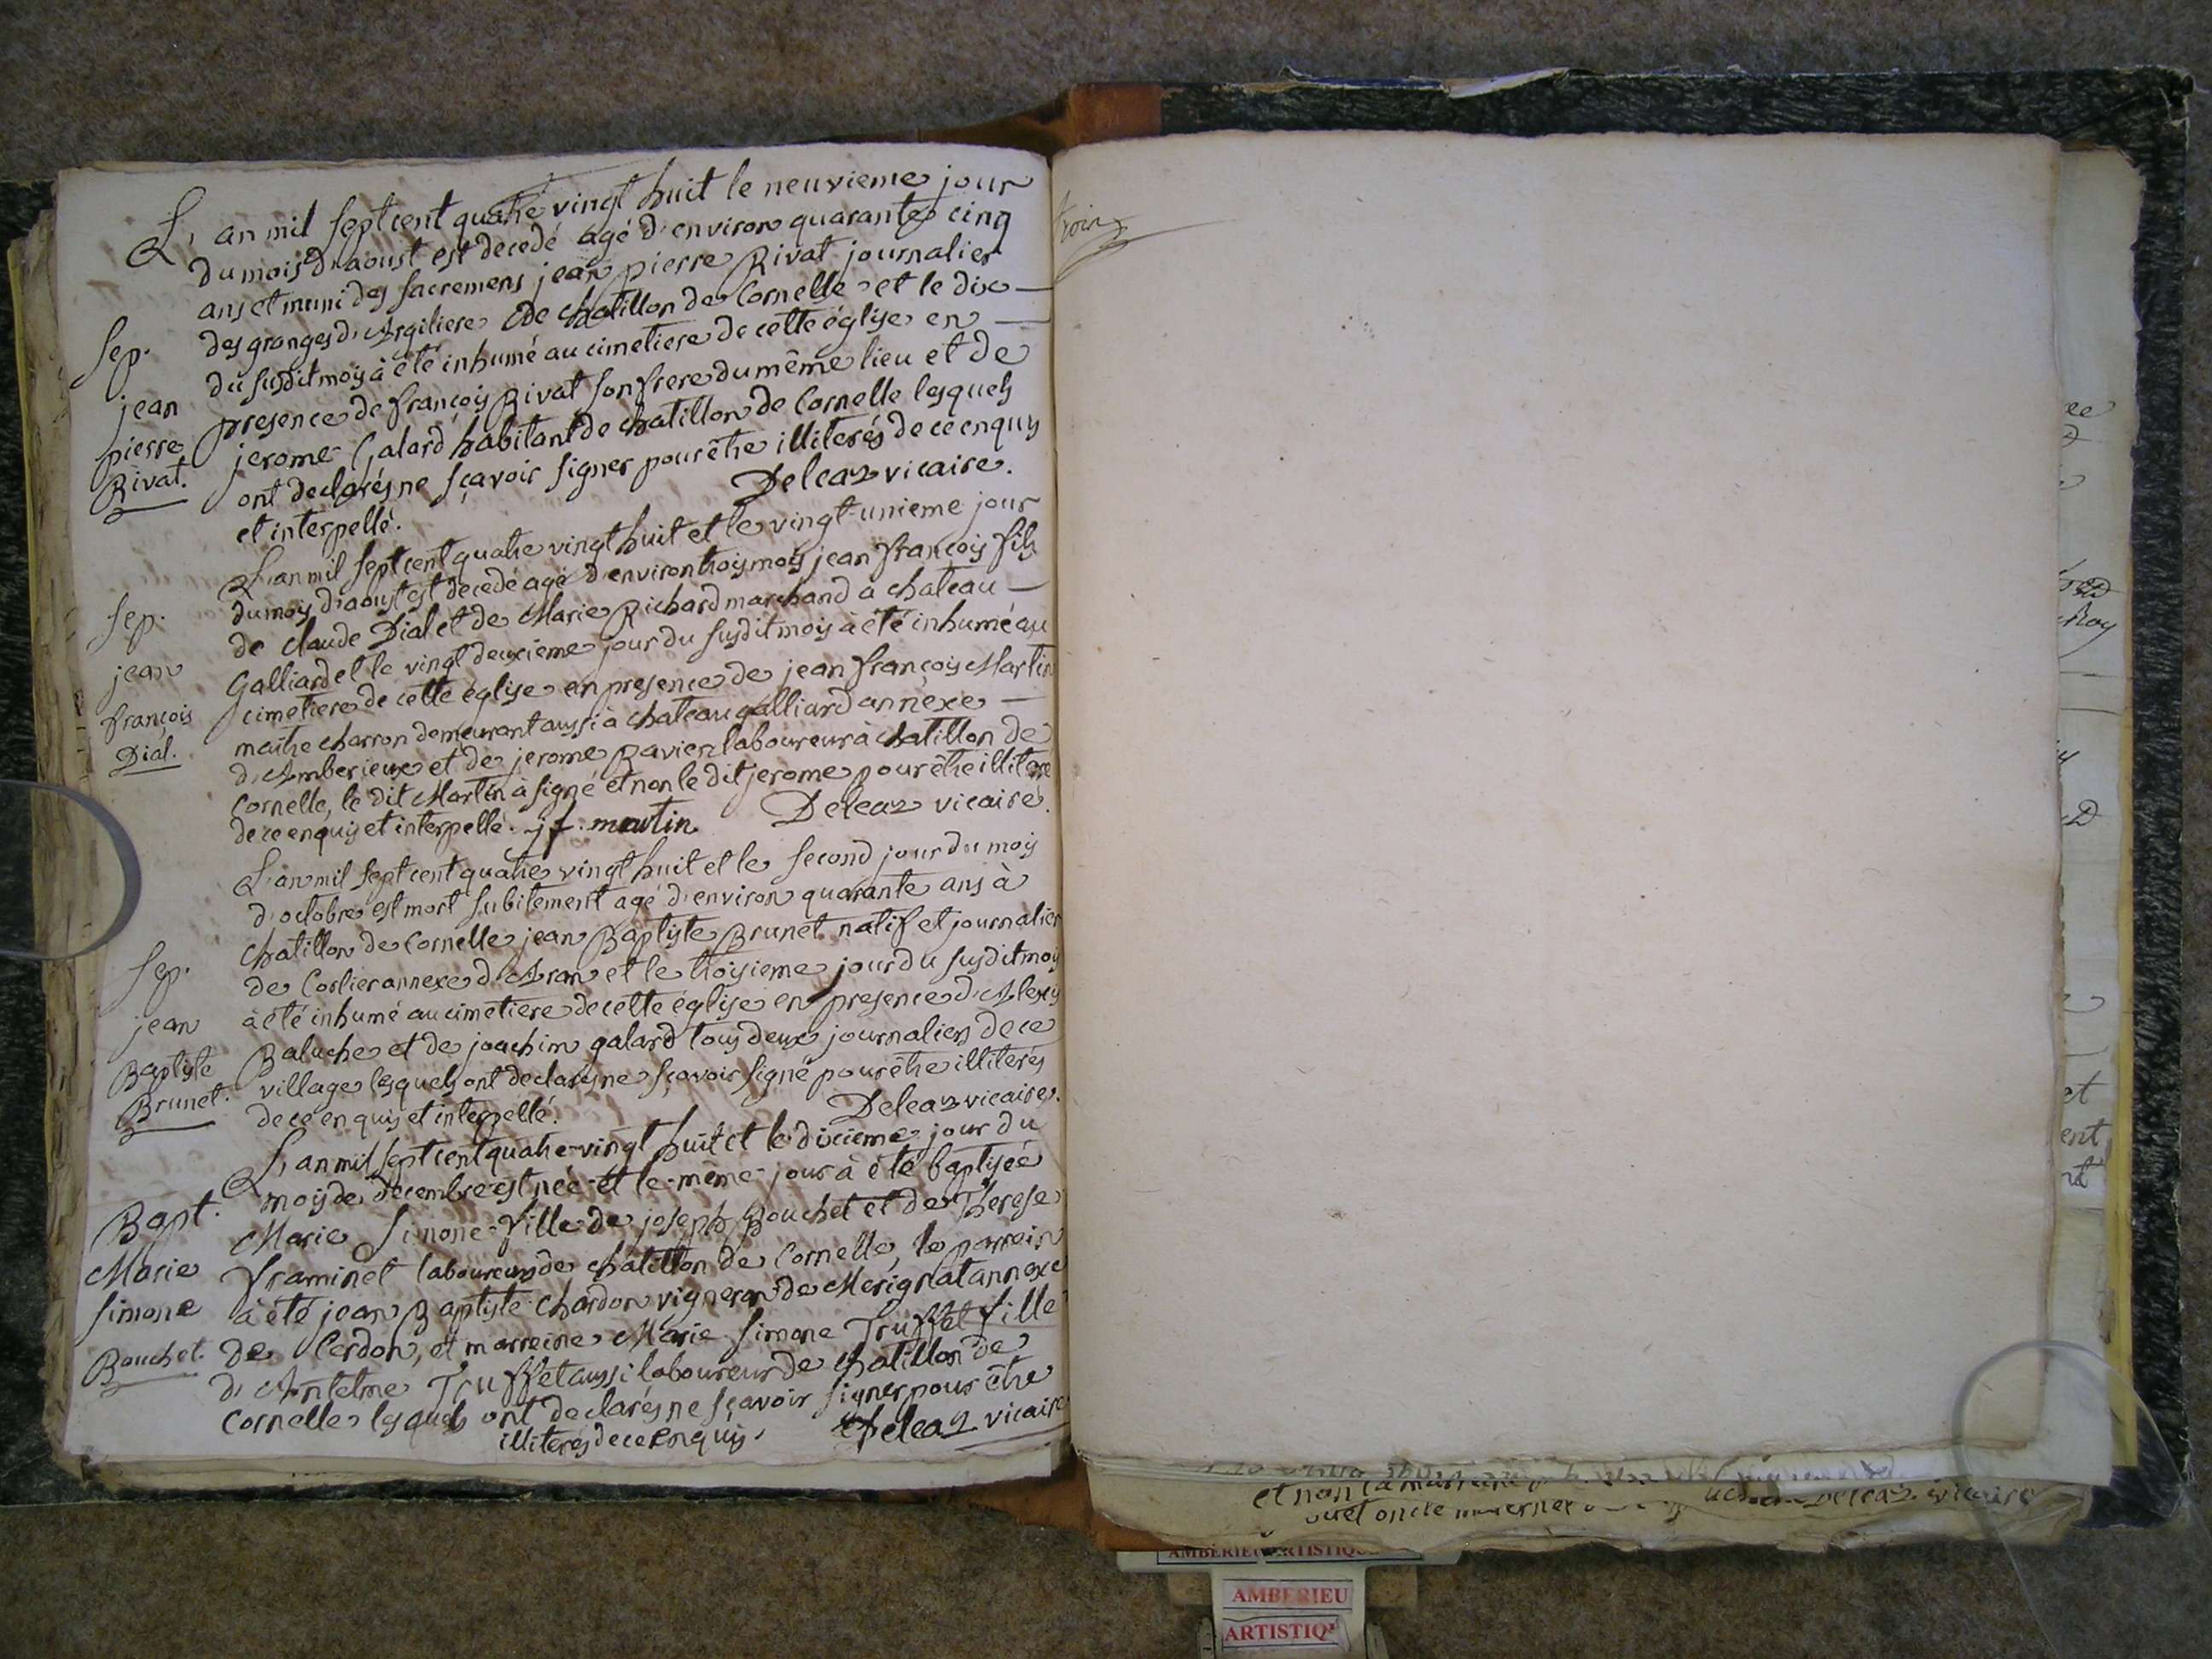 L'an mil sept cent quatre vingt huit le neuvieme jour
du mois d'aoust est decedé agé d'environ quarante cinq
ans et muni des sacremens jean pierre Rivat journalier
des granges d'Argiliere de chatillon de Cornelle et le dix
du susdit mois à été inhumé au cimetiere de cette église en
presence de françois Rivat son frere du même lieu et de
jerome Galard habitant de chatillon de Cornelle lesquels
ont declarés ne sçavoir signer pour être illiterés de ce enquis
et interpellé. Deleaz vicaire.
Sep.
jean
pierre
Rivat.
L'an mil sept cent quatre vingt huit et le vingt-unieme jour
du mois d'aoust est decedé agé d'environ trois mois jean françois fils
de claude Dial et de Marie Richard marchand à chateau
Galliard et le vingt deuxieme jour du susdit mois à été inhumé au
cimetiere de cette église en presence de jean françois Martin
maitre charron demeurant aussi à chateau galliard annexe
d'Amberieux et de jerome Ravier laboureur à chatillon de
Cornelle, le dit Martin à signé et non le dit jerome pour être illiteré
de ce enquis et interpellé. jf. martin Deleaz vicaire.
Sep.
jean
françois
Dial.
L'an mil sept cent quatre vingt huit et le second jour du mois
d'octobre est mort subitement agé d'environ quarante ans à
chatillon de Cornelle jean Baptiste Brunet natif et journalier
de Corlier annexe d'Aran et le troisieme jour du susdit mois
à été inhumé au cimetiere de cette église en presence d'Alexis
Baluche et de joachim galard tous deux journaliers de ce
village lesquels ont declarés ne sçavoir signé pour être illiterés
de ce enquis et interpellé. Deleaz vicaire.
Sep.
jean
Baptiste
Brunet.
L'an mil sept cent quatre-vingt huit et le dixieme jour du
mois de decembre est née et le même jour à été baptisée
Marie Simone fille de joseph Bouchet et de Therese
framinet laboureurs de chatillon de Cornelle, le parrein
à été jean Baptiste chardon vigneron de Merignat annexe
de Cerdon, et marreine Marie Simone Truffet fille
d'Antelme Truffet aussi laboureur de chatillon de
Cornelle lesquels ont declarés ne sçavoir signer pour être
illiterés de ce enquis. Deleaz vicaire
Bapt.
Marie
Simone
Bouchet.
et non la
Deleaz vicaire
oncle
et
ent
AMBERIEU ARTISTIQUE
AMBERIEU
ARTISTIQ